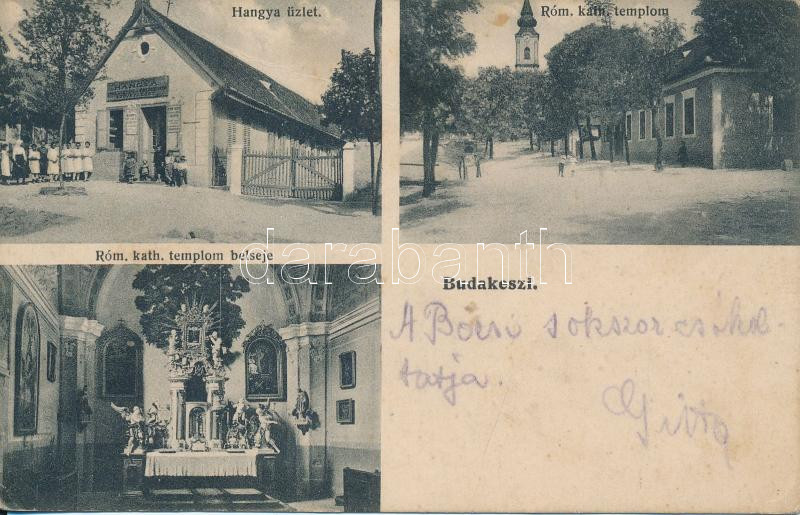 Hangya üzlet.
Róm. kath. templom
HANGYA
Róm. kath. templom belseje
darabanth
Budakeszi.
A Borsi sokszor csókol-
tatja.